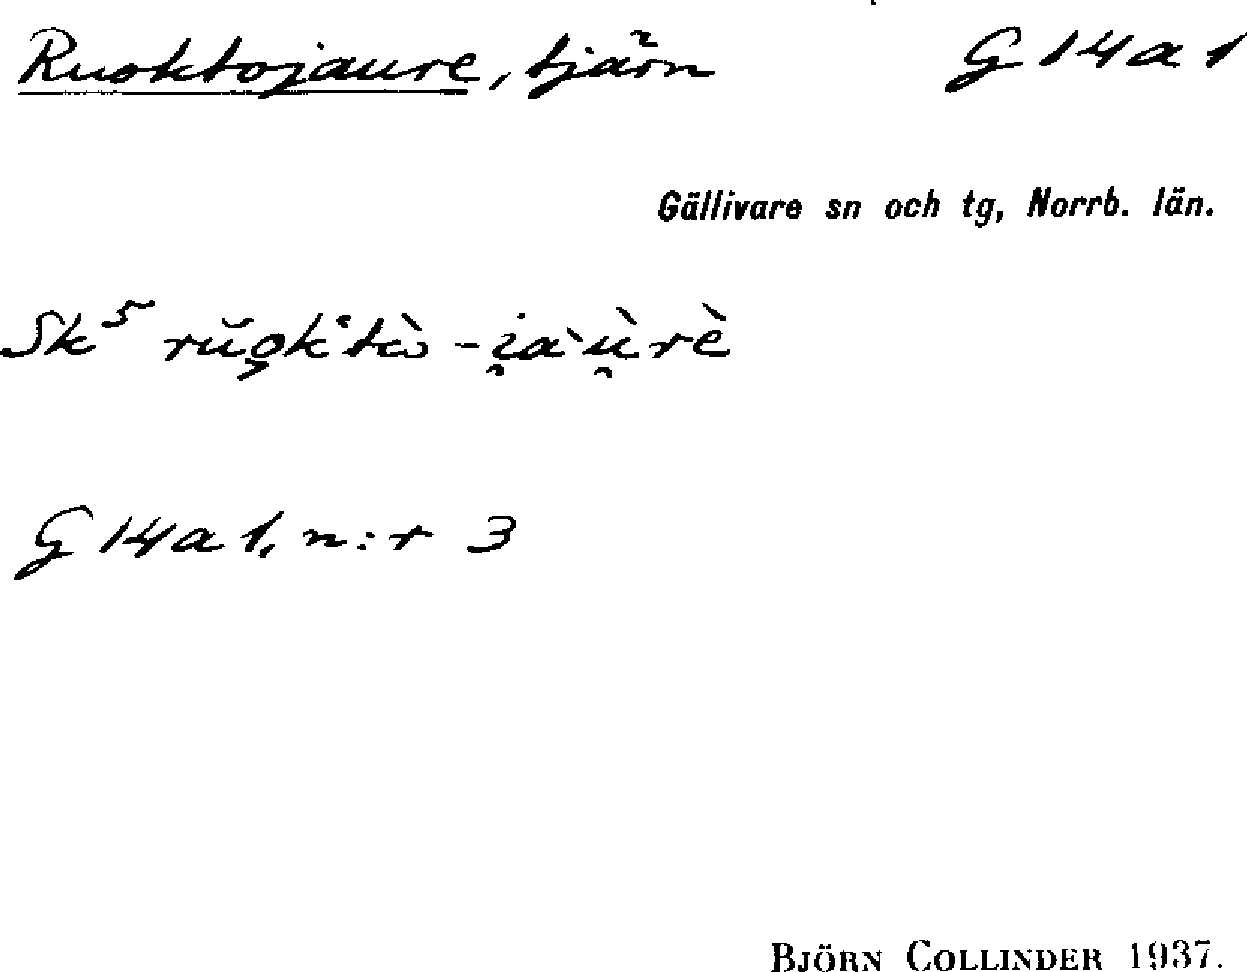 Ruoktojaure, tjärn G 14 a 1
Gällivare sn och tg, Norrb. län.
Sk⁵ rŭo̧k‘tὼ-i̯a`ù̯rè
G 14 a 1, n:r 3
BJÖRN COLLINDER 1937.